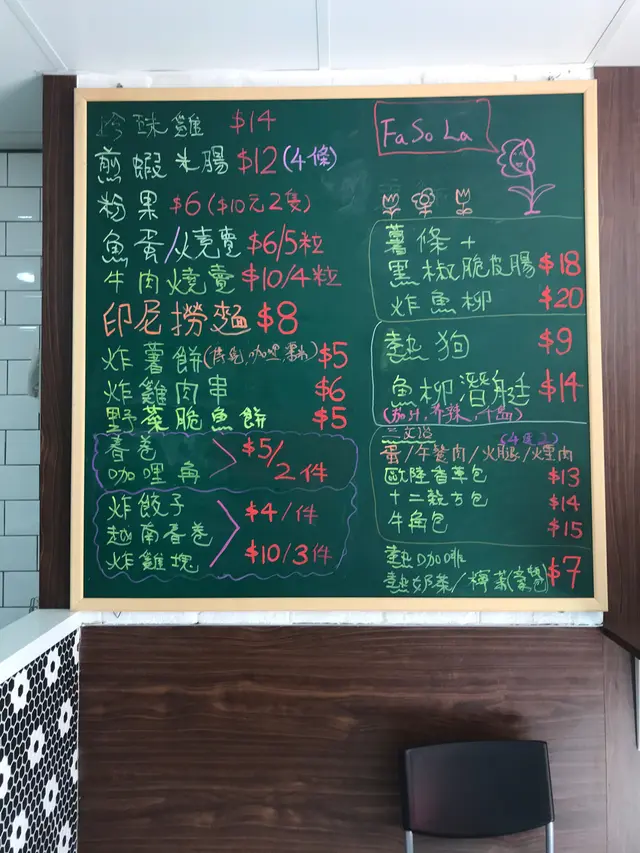 珍珠雞 $14
煎蝦米腸 $12 (4條)
粉果 $6 ($10元2隻)
魚蛋/燒賣 $6/5粒
牛肉燒賣 $10/4粒
印尼撈麵 $8
炸薯餅 $5
炸雞肉串 $6
野菜脆魚餅 $5
春卷
咖哩角
$5/2件
炸餃子
越南春卷
炸雞塊
$4/件
$10/3件
FaSoLa
薯條+
黑椒脆皮腸 $18
炸魚柳 $20
熱狗 $9
魚柳潛艇 $14
三文治
蛋/午餐肉/火腿/煙肉
歐陸香草包 $13
十二穀方包 $14
牛角包 $15
熱咖啡
熱奶茶/檸茶 $7